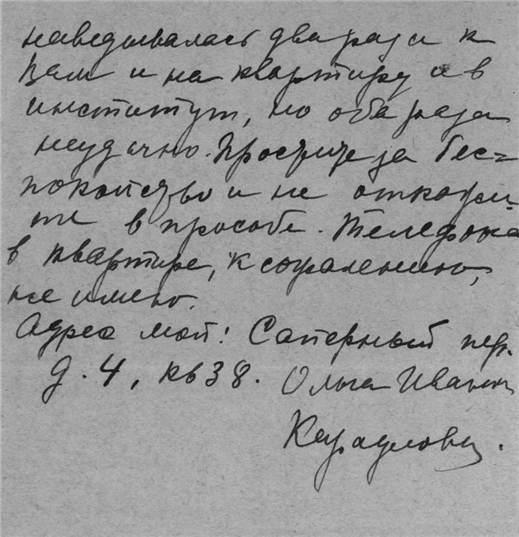 наведывалась два раза к
Вам и на квартиру и в
институт, но оба раза
неудачно. Простите за бес=
покойство и не откажи-
те в просьбе. Телефона
в квартире, к сожалению,
не имею.
Адрес мой: Саперный пер.
д. 4, кв 38. Ольга Ивановн